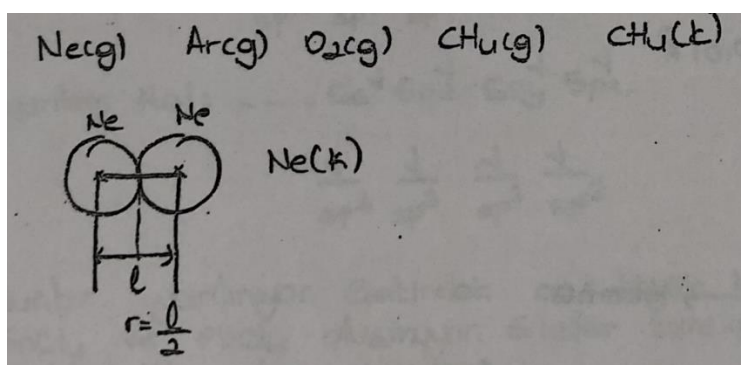 Ne(g) Ar(g) O₂(g) CH₄(g) CH₄(k)
Ne Ne
Ne(k)
l
r = l/2